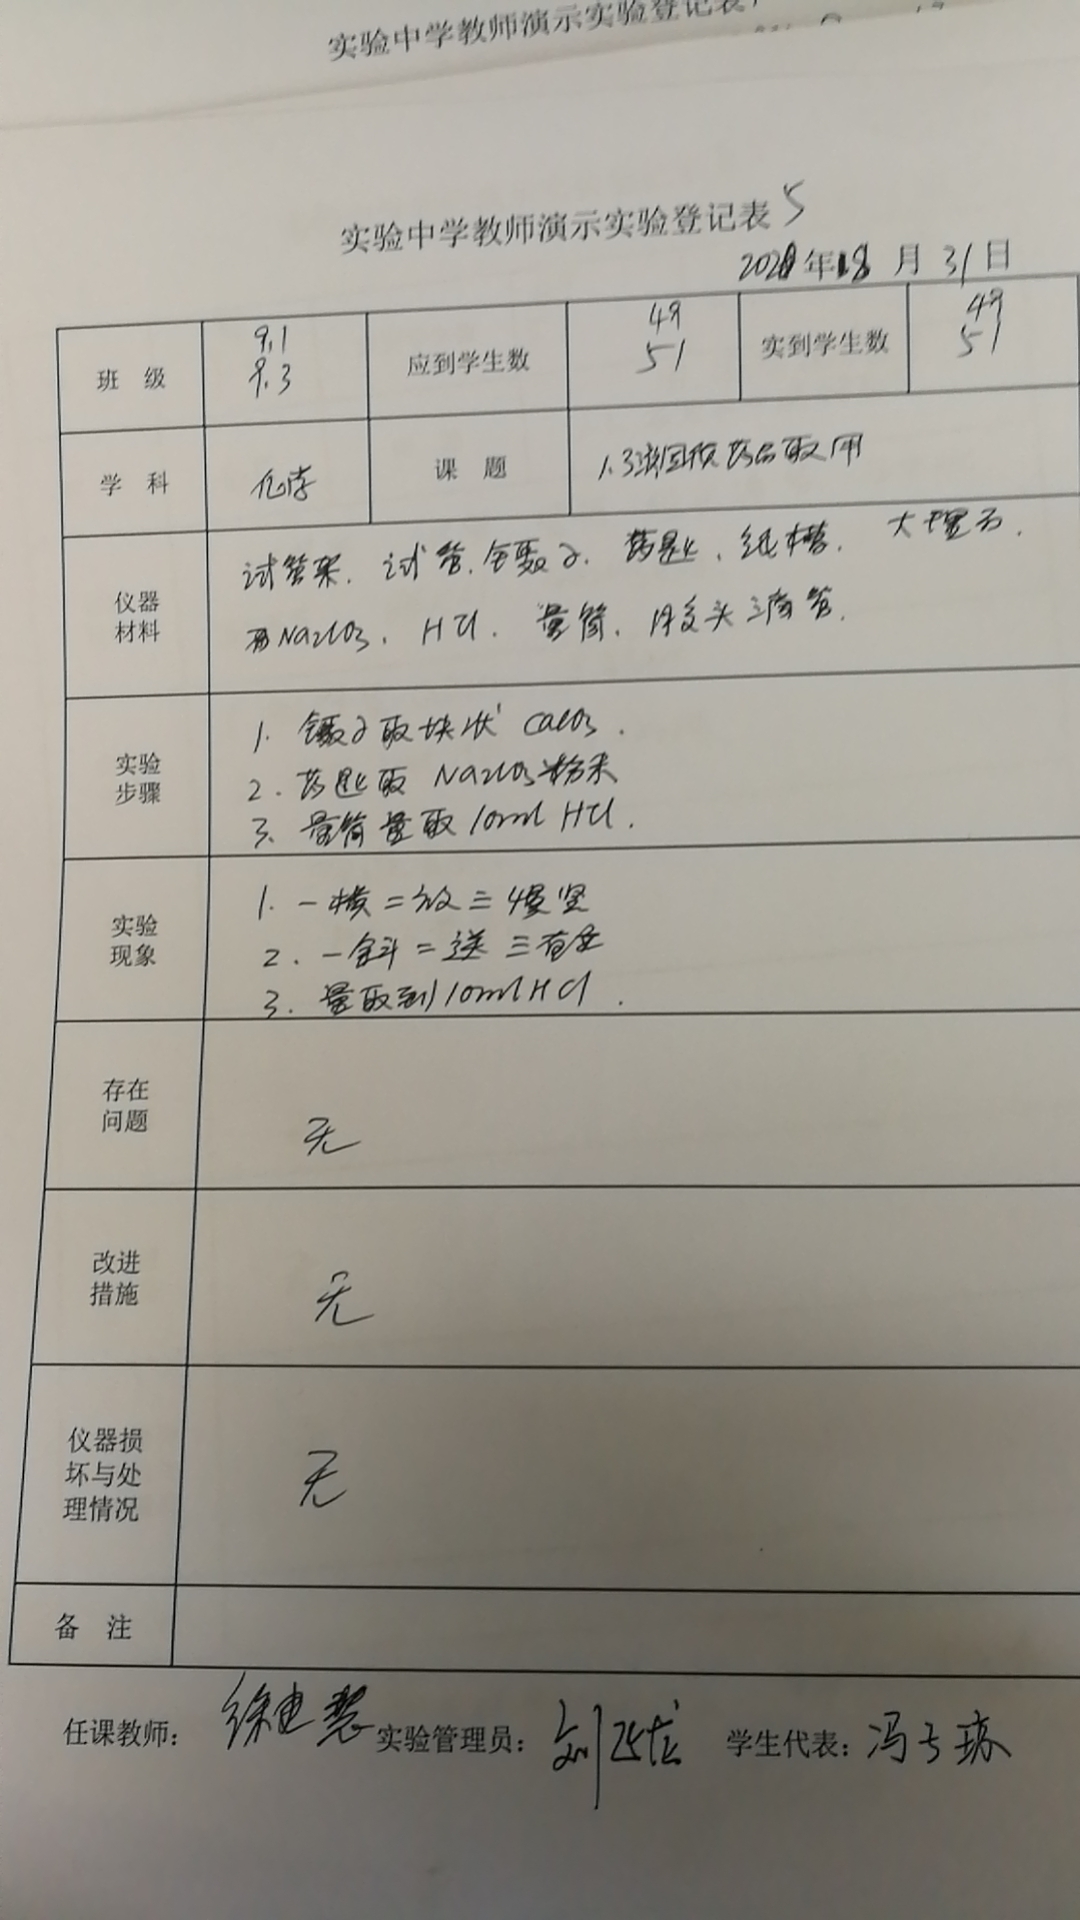 实验中学教师演示实验登记表
实验中学教师演示实验登记表 5
年 8 月 31 日
班 级 9.1 9.3 应到学生数 49 51 实到学生数 49 51
学 科 化学 课 题 1.3 药品取用
仪器材料 试管架. 试管. 镊子. 药匙. 纸槽. 大理石.
Na2CO3. HCl. 量筒. 胶头滴管.
实验步骤 1. 镊子取块状 CaCO3.
2. 药匙取 Na2CO3粉末
3. 量筒量取10ml HCl.
实验现象 1. 一横二放三慢竖
2. 一斜二送三直立
3. 量取到10ml HCl.
存在问题 无
改进措施 无
仪器损坏与处理情况 无
备 注
任课教师: 实验管理员: 学生代表: